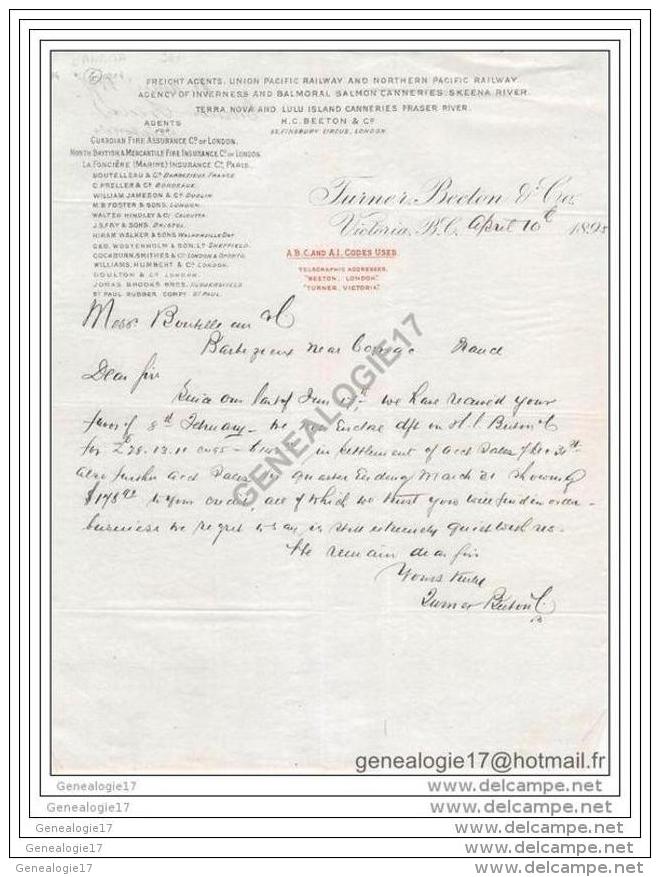 FREIGHT AGENTS, UNION PACIFIC RAILWAY AND NORTHERN PACIFIC RAILWAY.
AGENCY OF INVERNESS AND BALMORAL SALMON CANNERIES, SKEENA RIVER.
TERRA NOVA AND LULU ISLAND CANNERIES FRASER RIVER.
H.C. BEETON & Co.
FINSBURY CIRCUS, LONDON.
AGENTS
FOR
GUARDIAN FIRE ASSURANCE Co. OF LONDON.
NORTH BRITISH & MERCANTILE FIRE INSURANCE Co. OF LONDON
LA FONCIÈRE (MARINE) INSURANCE Co. PARIS.
BOUTELLEAU & Co. BARBEZIEUX. FRANCE
C. PRELLER & Co. BORDEAUX.
WILLIAM JAMESON & Co. DUBLIN
M.B. FOSTER & SONS, LONDON.
WALTER HINDLEY & Co. CALCUTTA.
J.S. FRY & SONS, BRISTOL.
HIRAM WALKER & SONS WALKERVILLE ONT.
GEO. WOSTENHOLM & SON Ld. SHEFFIELD.
COCKBURN, SMITHES & Co. LONDON & OPORTO.
WILLIAMS, HUMBERT & Co. LONDON.
DOULTON & Co. LONDON.
JONAS BROOKS BROS. HUDDERSFIELD
ST PAUL RUBBER COMPY ST PAUL.
Turner, Beeton & Co.
Victoria, B.C. April 10th 1895
A.B.C. AND A.I. CODES USED.
TELEGRAPHIC ADDRESSES.
"BEETON, LONDON"
"TURNER, VICTORIA"
Mess Boutelleau & Co
Barbezieux near Cognac France
Dear Sir
Since our last of 17th we have received your
favor of 8th February - we enclose dft on H C Beeton & Co
for £28.13.11 in settlement of acct Sales Dec 31st
also further acct Sales for quarter Ending March 31 showing
to your credit, all of which we trust you will find in order -
business we regret to say is still extremely quiet with us.
We remain dear Sir
Yours truly
Turner Beeton & Co
GENEALOGIE17
genealogie17@hotmail.fr
Genealogie17 www.delcampe.net
Genealogie17 www.delcampe.net
Genealogie17 www.delcampe.net
Genealogie17 www.delcampe.net